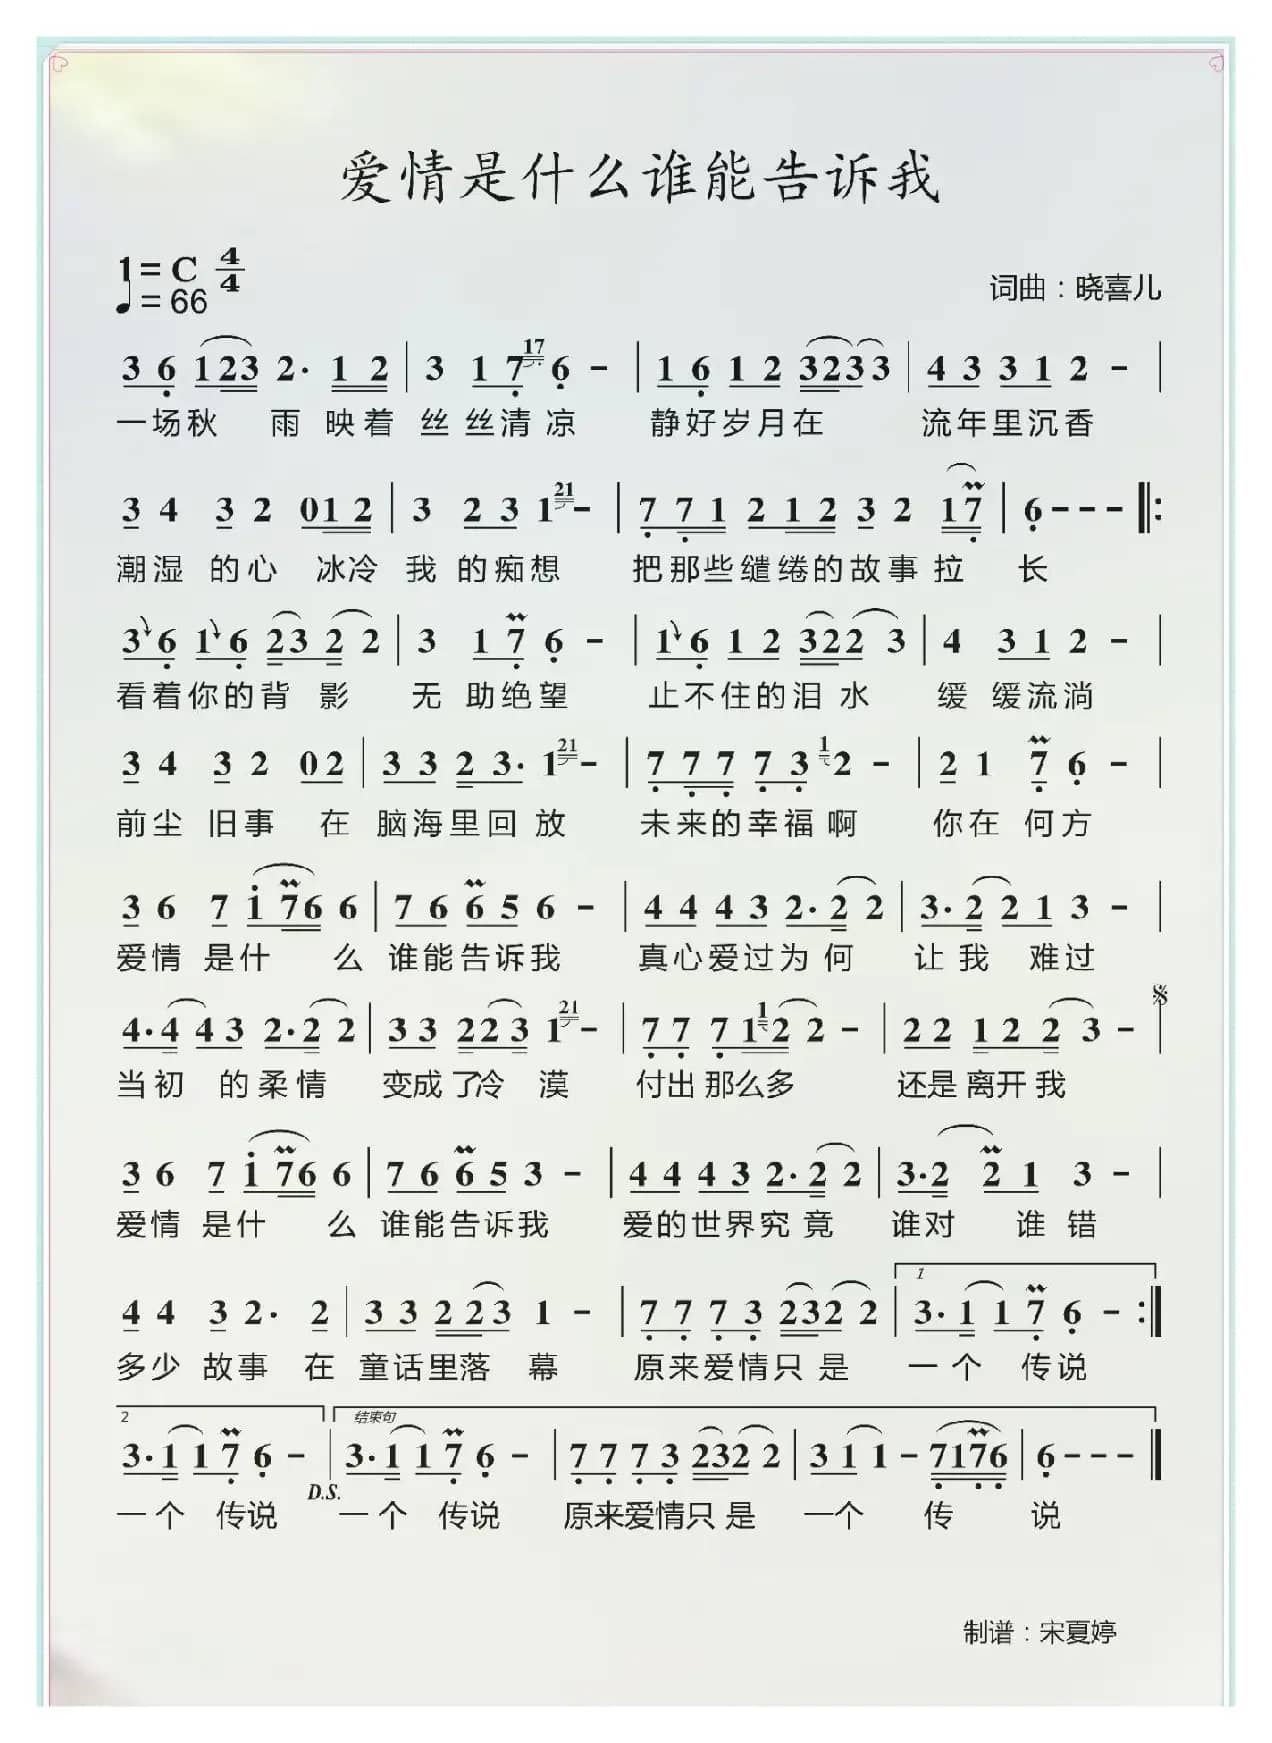 爱情是什么谁能告诉我
1=C 4/4
♩=66
词曲：晓喜儿
3 6 1 2 3 2· 1 2 | 3 1 7 17 6 - | 1 6 1 2 3 2 3 3 | 4 3 3 1 2 - |
一场秋 雨 映着 丝 丝清 凉 静好岁月在 流年里沉香
3 4 3 2 0 1 2 | 3 2 3 1 21 - | 7 7 1 2 1 2 3 2 1 7 | 6 - - - ‖:
潮湿 的心 冰冷 我 的痴想 把那些缱绻的故事拉 长
3 6 1 6 2 3 2 2 | 3 1 7 6 - | 1 6 1 2 3 2 2 3 | 4 3 1 2 - |
看着你的背 影 无 助绝望 止不住的泪 水 缓 缓流淌
3 4 3 2 0 2 | 3 3 2 3· 1 21 - | 7 7 7 7 3 1 2 - | 2 1 7 6 - |
前尘 旧事 在 脑海里回 放 未来的幸福 啊 你在 何方
3 6 7 1 7 6 6 | 7 6 6 5 6 - | 4 4 4 3 2· 2 2 | 3· 2 2 1 3 - |
爱情 是什 么 谁能告诉我 真心爱过为 何 让 我 难过
4· 4 4 3 2· 2 2 | 3 3 2 2 3 1 21 - | 7 7 7 1 1 2 2 - | 2 2 1 2 2 3 - |
当初 的柔情 变成了冷 漠 付出那么多 还是离开我
3 6 7 1 7 6 6 | 7 6 6 5 3 - | 4 4 4 3 2· 2 2 | 3· 2 2 1 3 - |
爱情 是什 么 谁能告诉我 爱的世界究 竟 谁对 谁 错
1
4 4 3 2· 2 | 3 3 2 2 3 1 - | 7 7 7 3 2 3 2 2 | 3· 1 1 7 6 - :‖
多少 故事 在 童话里落 幕 原来爱情只 是 一 个 传说
2 结束句
3· 1 1 7 6 - | 3· 1 1 7 6 - | 7 7 7 3 2 3 2 2 | 3 1 1 - 7 1 7 6 | 6 - - - ‖
D.S.
一个 传说 一 个 传说 原来爱情只 是 一个 传 说
制谱：宋夏婷